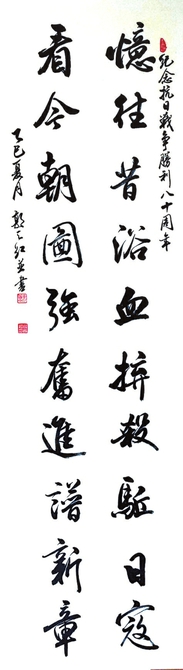 紀念抗日戰爭勝利八十周年
憶往昔浴血拚殺驅日寇
看今朝圖強奮進譜新章
乙巳夏月